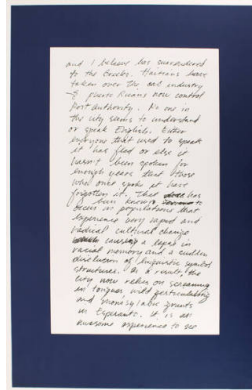 and I believe has surrendered
to the Exxobs. Haitians have
taken over the oil industry
& Puerto Ricans now control
Port authority. No one in
the city seems to understand
or speak English. Either
everyone that used to speak
it has fled or else it
hasn't been spoken for
enough years that those
who once spoke it have
forgotten it. That has
been known to
occur in populations that
experience very rapid and
radical cultural change
causing a lapse in
racial memory and a sudden
dissolution of linguistic symbol
structures. As a result, the
city now relies on screaming
in tongues, wild gesticulating
and monosyllabic grunts
in Esperanto. It is an
awesome experience to see